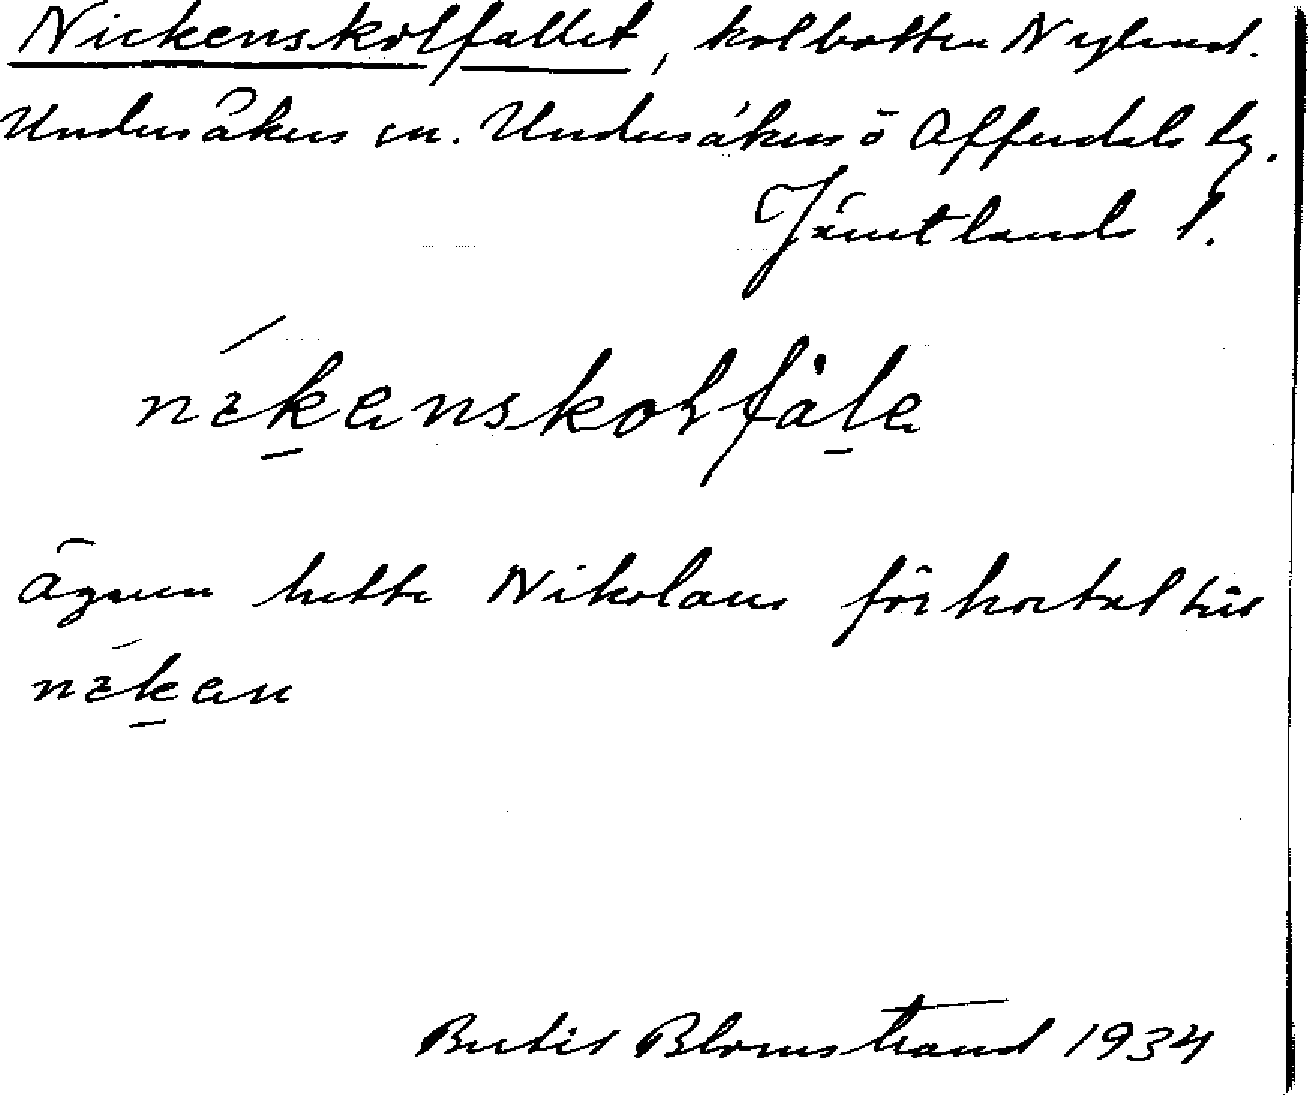 Nickenskolfallet, kolbotten Nyland.
Undersåkers sn. Undersåkers o Offerdals tg.
Jämtlands l.
nɪkenskolfále
Ägaren hette Nikolaus förkortat till
nɪken
Bertil Blomstrand 1934